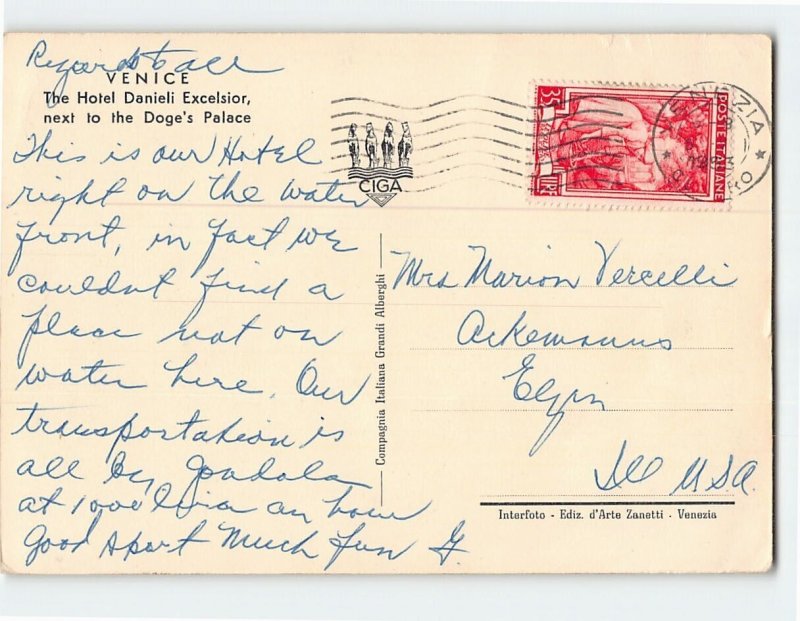 Regards to all
VENICE
The Hotel Danieli Excelsior,
next to the Doge's Palace
This is our Hotel
right on the water
front, in fact we
couldnt find a
place not on
water here. Our
transportation is
all by gondala
at 1000 liria an hour
Good sport Much fun G.
CIGA
35
LIRE
POSTE ITALIANE
VENEZIA
Compagnia Italiana Grandi Alberghi
Mrs Marion Vercelli
Ackemanns
Elgin
Ill USA.
Interfoto - Ediz. d'Arte Zanetti - Venezia